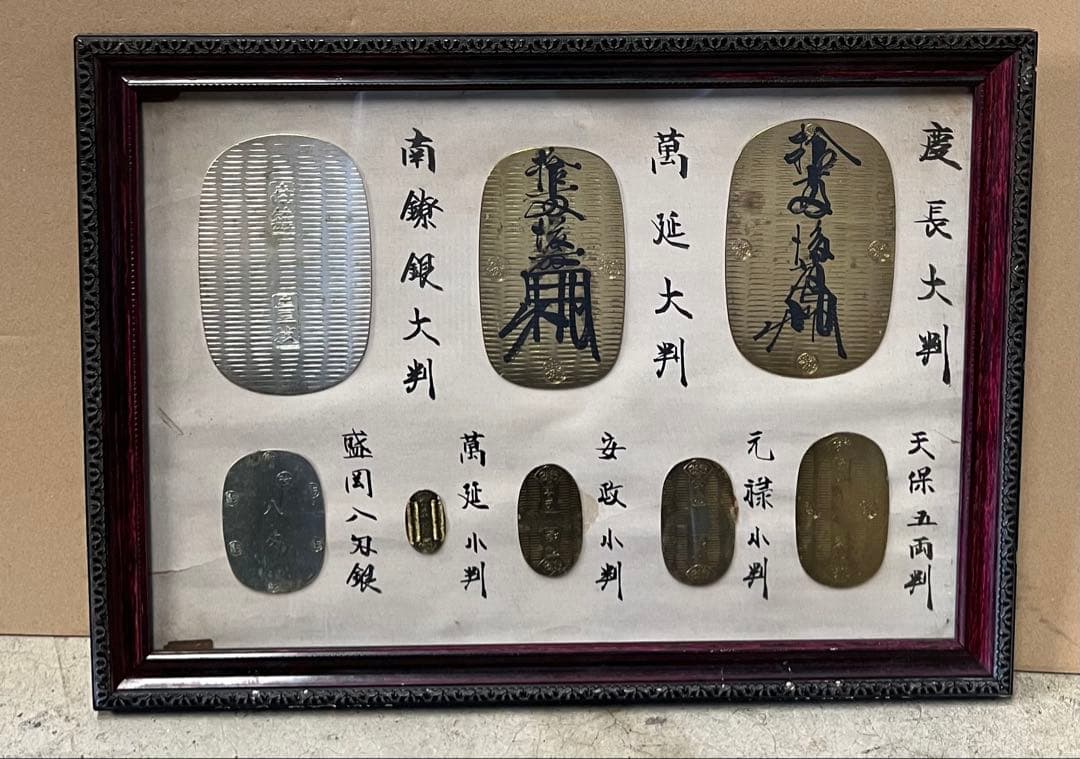 慶長大判
拾両後藤
萬延大判
拾両後藤
南鐐銀大判
天保五両判
元禄小判
安政小判
萬延小判
盛岡八匁銀
八匁